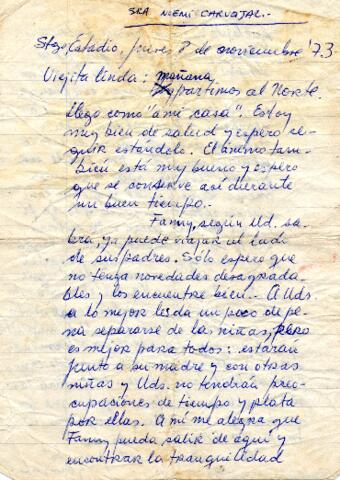 SRA NOEMI CARVAJAL.-
Stgo, Estadio, jueves 8 de noviembre '73
Viejita linda: mañana
partimos al Norte.
llego como "a mi casa". Estoy
muy bien de salud y espero se-
guir estándolo. El ánimo tam-
bién está muy bueno y espero
que se conserve así durante
un buen tiempo.-
Fanny, según Ud. sa-
brá, ya puede viajar al lado
de sus padres. Sólo espero que
no tenga novedades desagrada-
bles y los encuentre bien.- A Uds
a lo mejor les da un poco de pe-
na separarse de las niñas, pero
es mejor para todos: estarán
junto a su madre y con otras
niñas y Uds. no tendrán preo-
cupaciones de tiempo y plata
por ellas. A mí me alegra que
Fanny pueda salir de aquí y
encontrar la tranquilidad